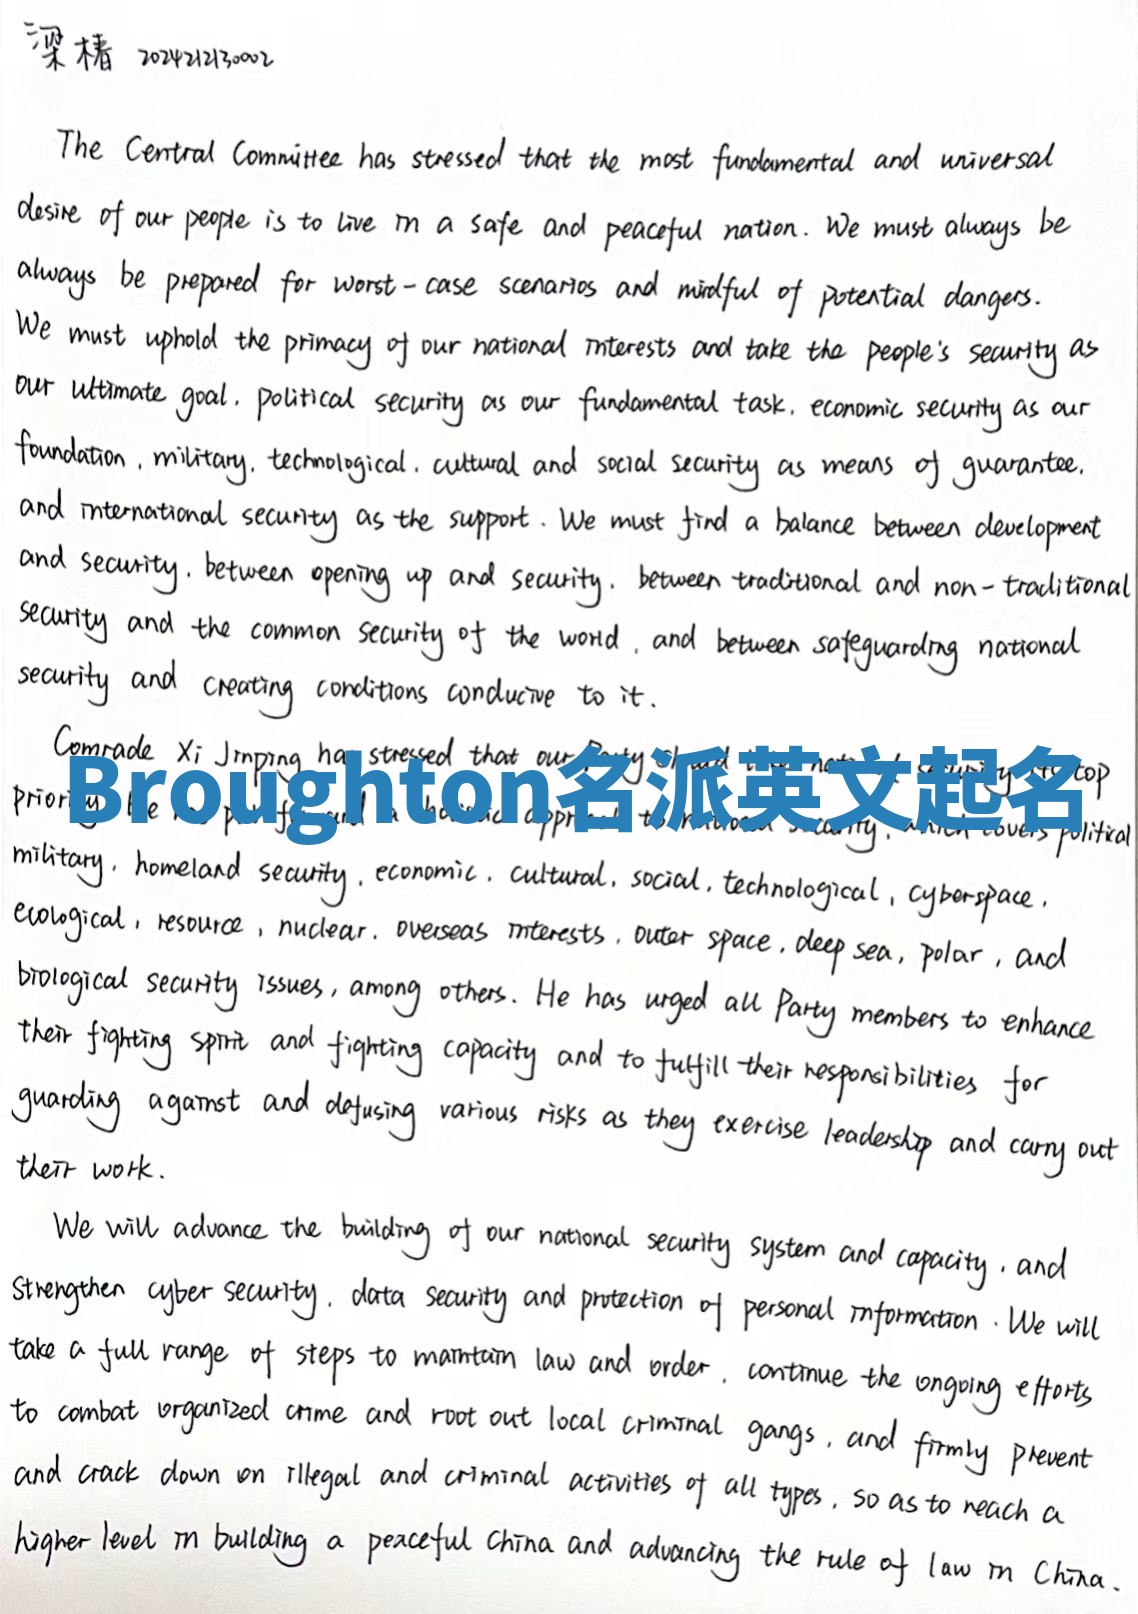 梁椿 2024212130002
The Central Committee has stressed that the most fundamental and universal
desire of our people is to live in a safe and peaceful nation. We must always be
always be prepared for worst-case scenarios and mindful of potential dangers.
We must uphold the primacy of our national interests and take the people's security as
our ultimate goal, political security as our fundamental task, economic security as our
foundation, military, technological, cultural and social security as means of guarantee,
and international security as the support. We must find a balance between development
and security, between opening up and security, between traditional and non-traditional
security and the common security of the world, and between safeguarding national
security and creating conditions conducive to it.
Comrade Xi Jinping has stressed that our Party top
Broughton名派英文起名
priority a to which covers political
military, homeland security, economic, cultural, social, technological, cyberspace,
ecological, resource, nuclear, overseas interests, outer space, deep sea, polar, and
biological security issues, among others. He has urged all Party members to enhance
their fighting spirit and fighting capacity and to fulfill their responsibilities for
guarding against and defusing various risks as they exercise leadership and carry out
their work.
We will advance the building of our national security system and capacity, and
strengthen cyber security, data security and protection of personal information. We will
take a full range of steps to maintain law and order, continue the ongoing efforts
to combat organized crime and root out local criminal gangs, and firmly prevent
and crack down on illegal and criminal activities of all types, so as to reach a
higher level in building a peaceful China and advancing the rule of law in China.